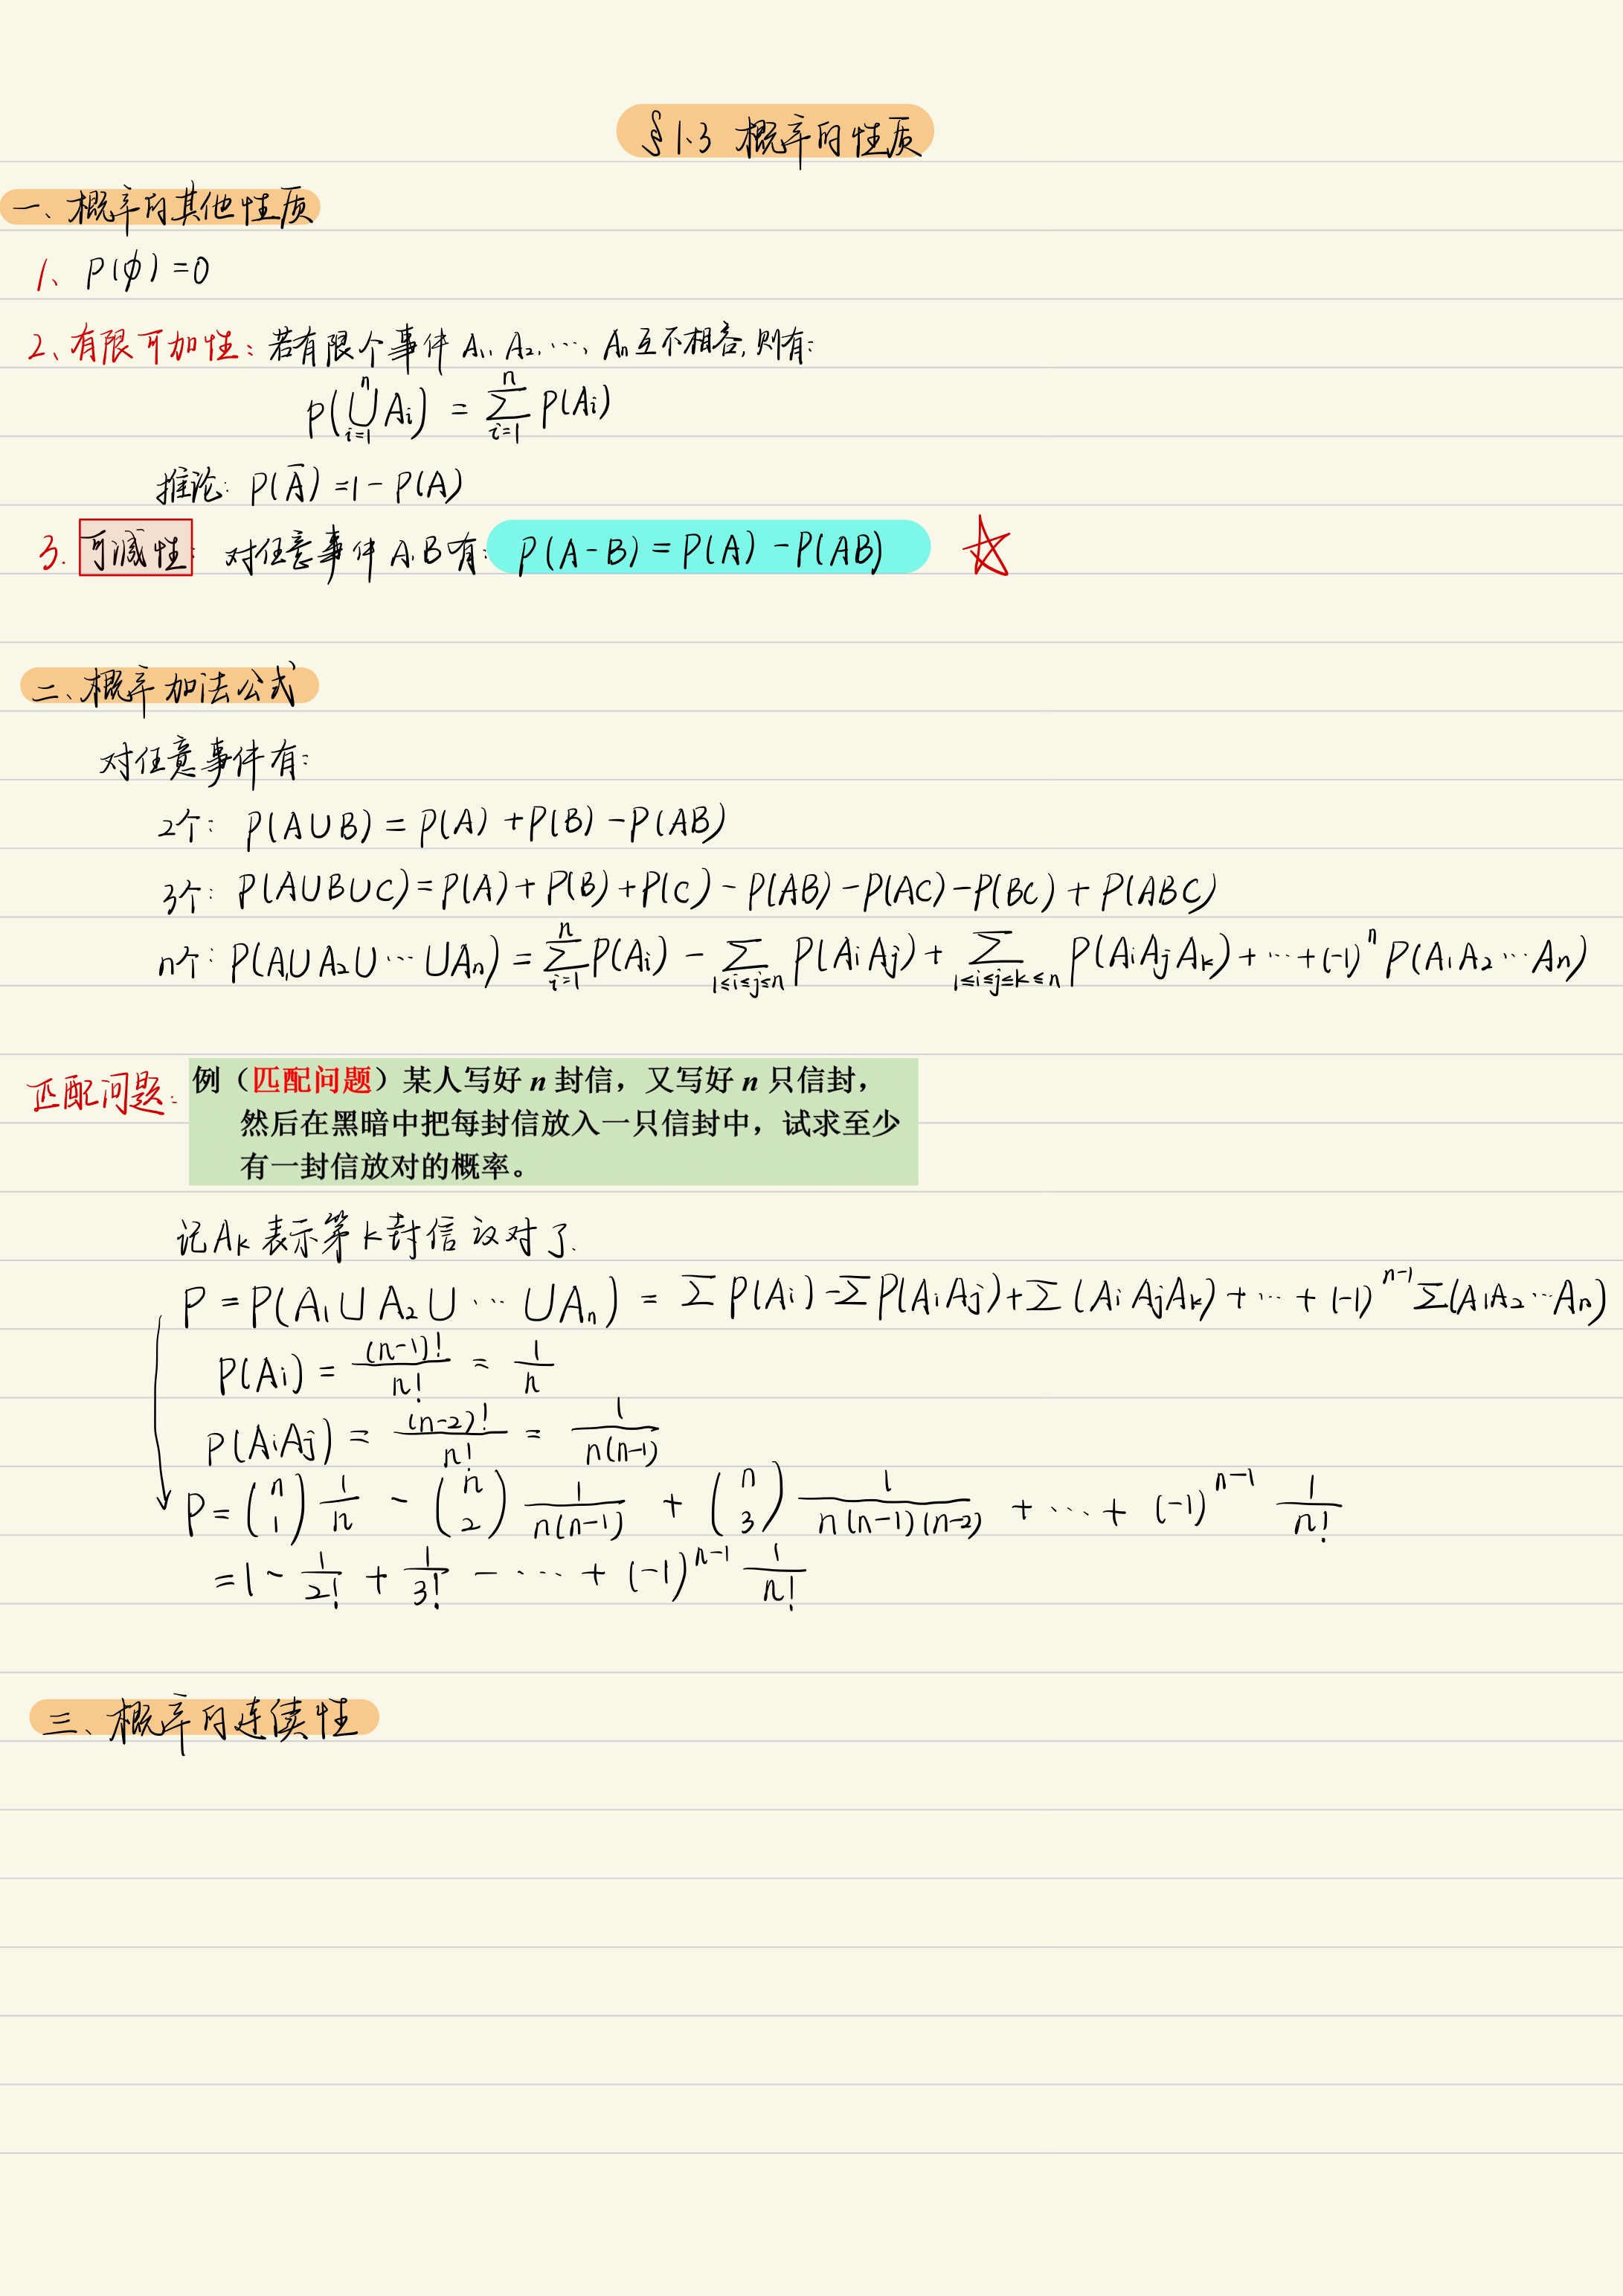 §1.3 概率的性质
一、概率的其他性质
1、P(φ)=0
2、有限可加性：若有限个事件 A₁, A₂, …, Aₙ 互不相容, 则有:
P(⋃ᵢ₌₁ⁿ Aᵢ) = ∑ᵢ₌₁ⁿ P(Aᵢ)
推论: P(A̅)=1-P(A)
3. 可减性: 对任意事件 A.B 有: P(A-B)=P(A)-P(AB) ☆
二、概率加法公式
对任意事件有:
2个: P(A∪B)=P(A)+P(B)-P(AB)
3个: P(A∪B∪C)=P(A)+P(B)+P(C)-P(AB)-P(AC)-P(BC)+P(ABC)
n个: P(A₁∪A₂∪…∪Aₙ)=∑ᵢ₌₁ⁿ P(Aᵢ) - ∑_{1≤i≤j≤n} P(AᵢAⱼ) + ∑_{1≤i≤j≤k≤n} P(AᵢAⱼAₖ) + … + (-1)ⁿ P(A₁A₂…Aₙ)
匹配问题: 例（匹配问题）某人写好 n 封信，又写好 n 只信封，
然后在黑暗中把每封信放入一只信封中，试求至少
有一封信放对的概率。
记Aₖ表示第k封信放对了.
P = P(A₁∪A₂∪…∪Aₙ) = ∑P(Aᵢ) - ∑P(AᵢAⱼ) + ∑(AᵢAⱼAₖ) + … + (-1)ⁿ⁻¹ ∑(A₁A₂…Aₙ)
P(Aᵢ) = (n-1)!/n! = 1/n
P(AᵢAⱼ) = (n-2)!/n! = 1/n(n-1)
P = (n 1) 1/n - (n 2) 1/n(n-1) + (n 3) 1/n(n-1)(n-2) + … + (-1)ⁿ⁻¹ 1/n!
= 1 - 1/2! + 1/3! - … + (-1)ⁿ⁻¹ 1/n!
三、概率的连续性